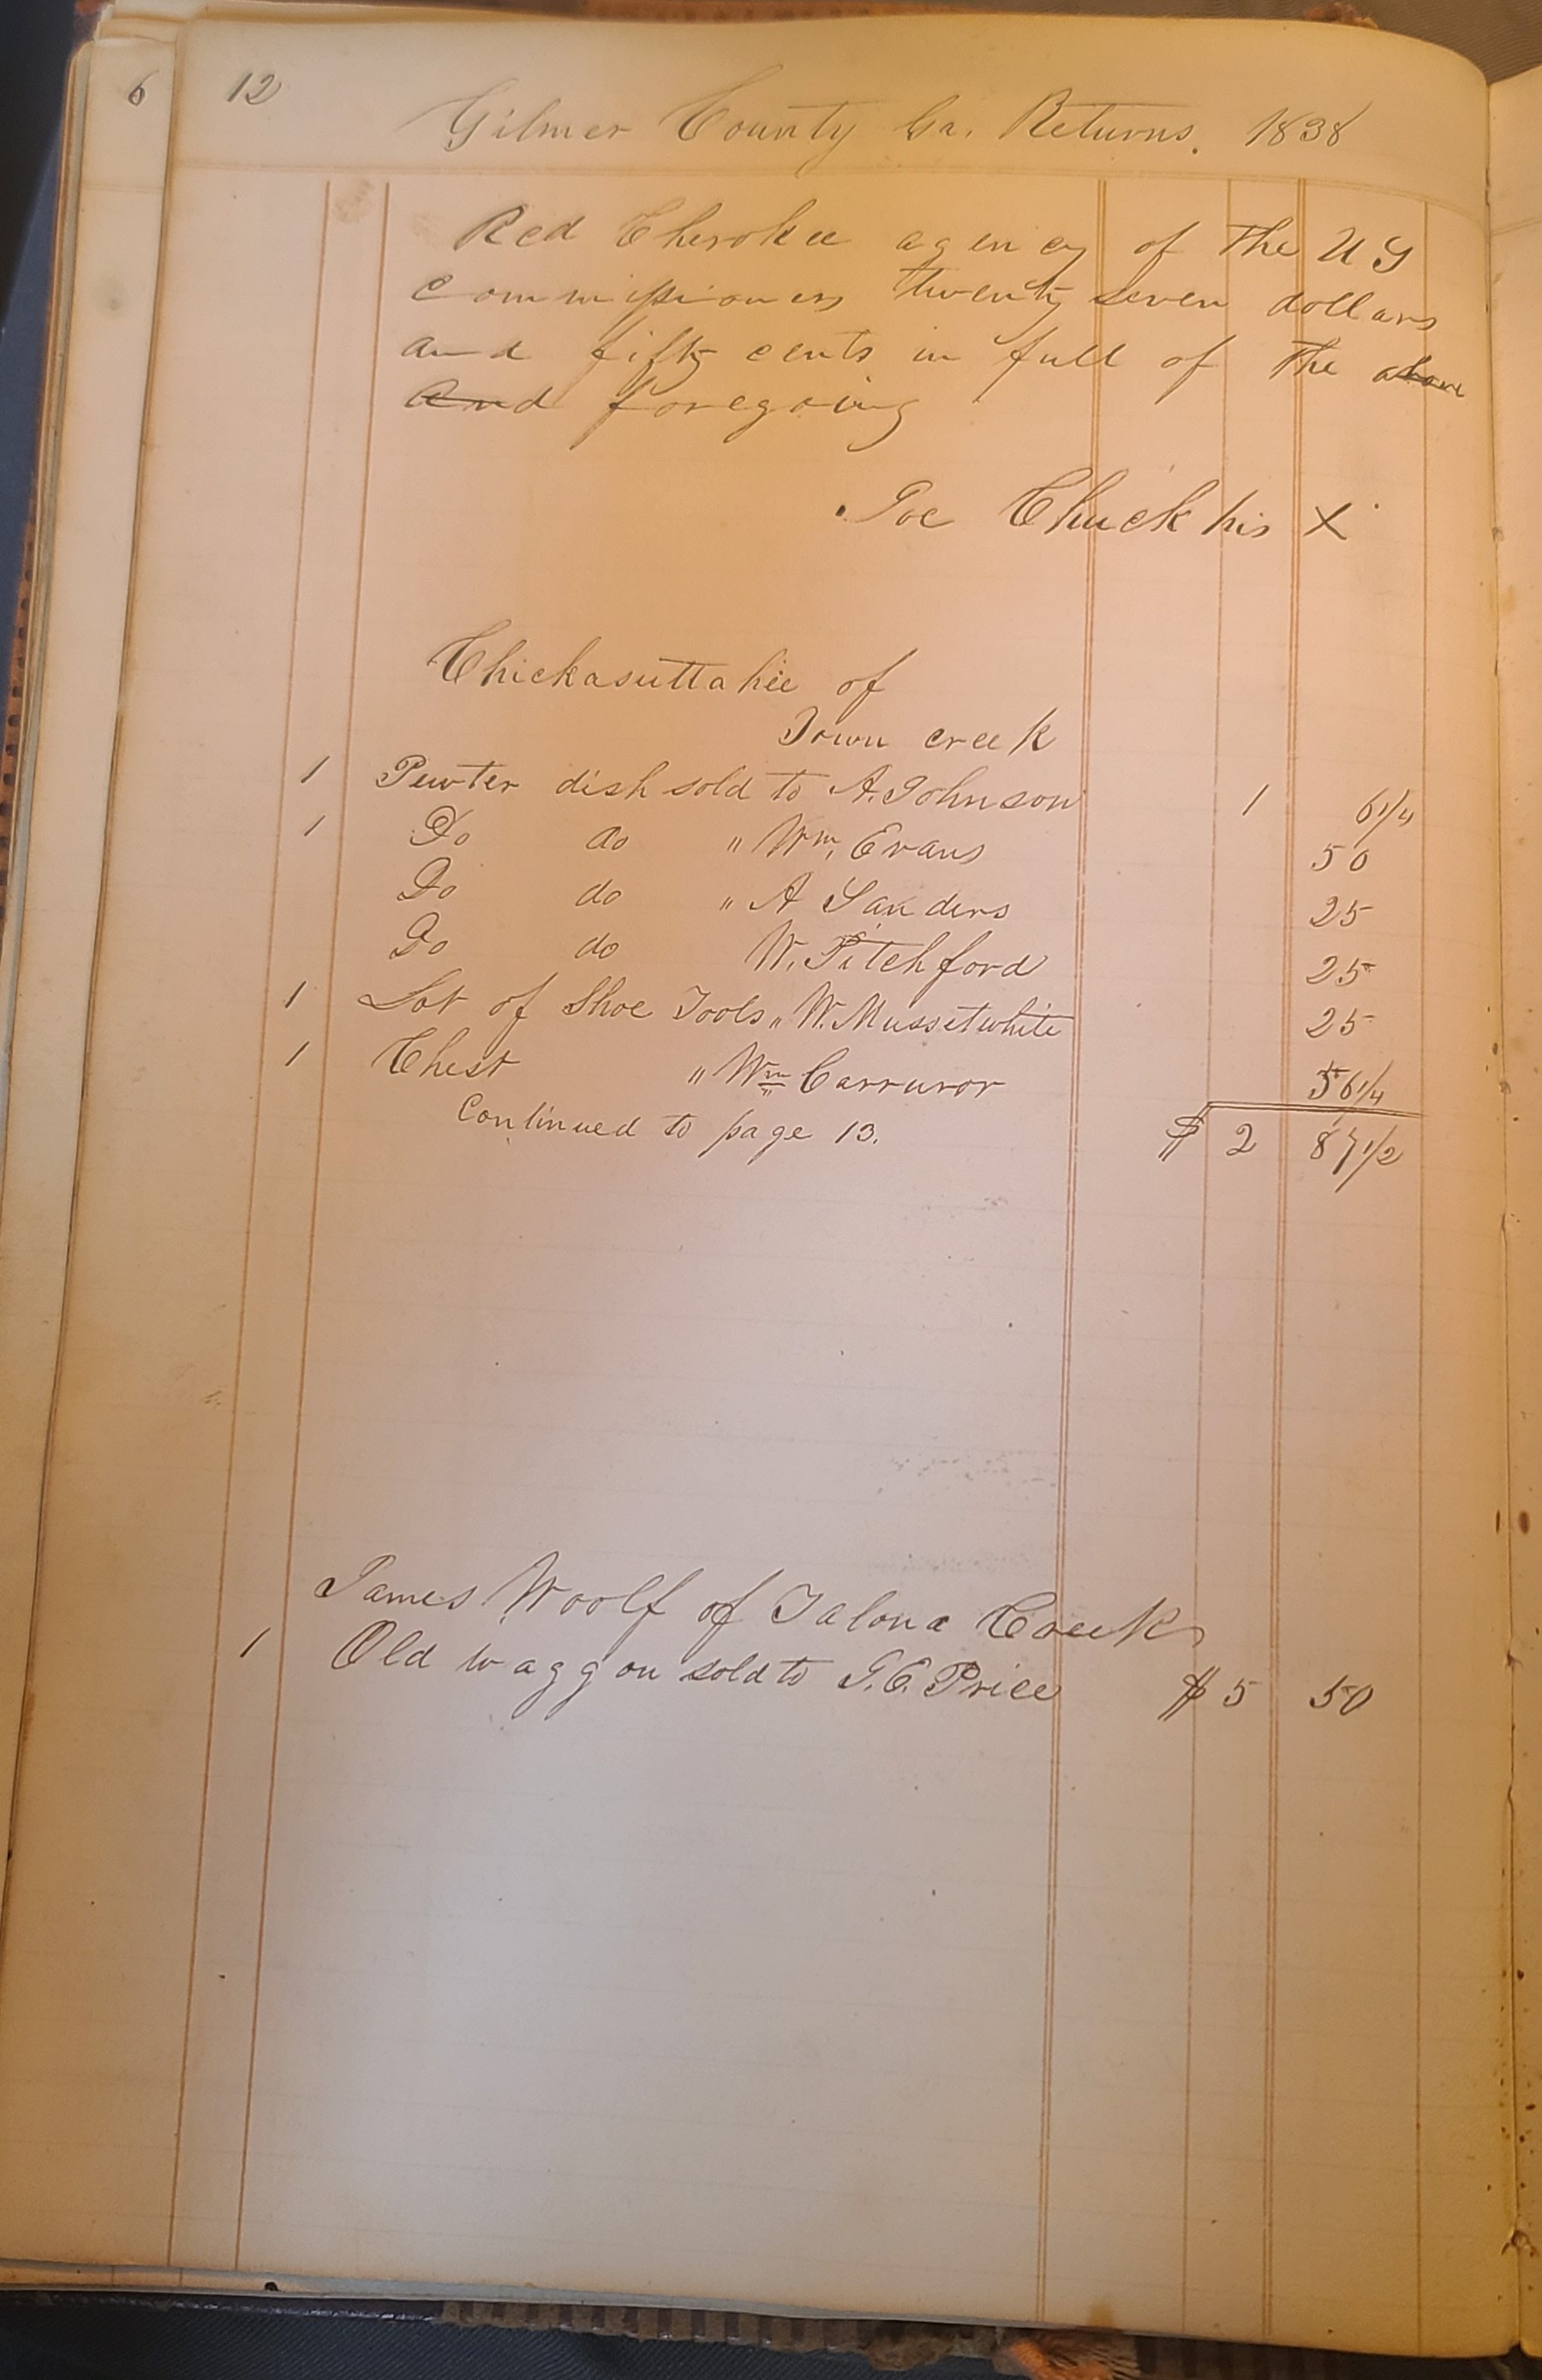 6
12
Gilmer County Ga. Returns. 1838
Recd Cherokee agency of the U S
commissioners twenty seven dollars
and fifty cents in full of the above
and foregoing
Joe Chuck his X
Chickasuttahee of
Town creek
1 Pewter dish sold to A. Johnson 1 6 1/4
1 Do do " Wm. Evans 50
Do do " A Sanders 25
Do do W. Pitchford 25
1 Lot of Shoe Tools " W. Mussetwhite 25
1 Chest " Wm Carruror 56 1/4
Continued to page 13. $ 2 87 1/2
James Woolf of Talona Creek
1 Old waggon sold to G. E. Price $ 5 50